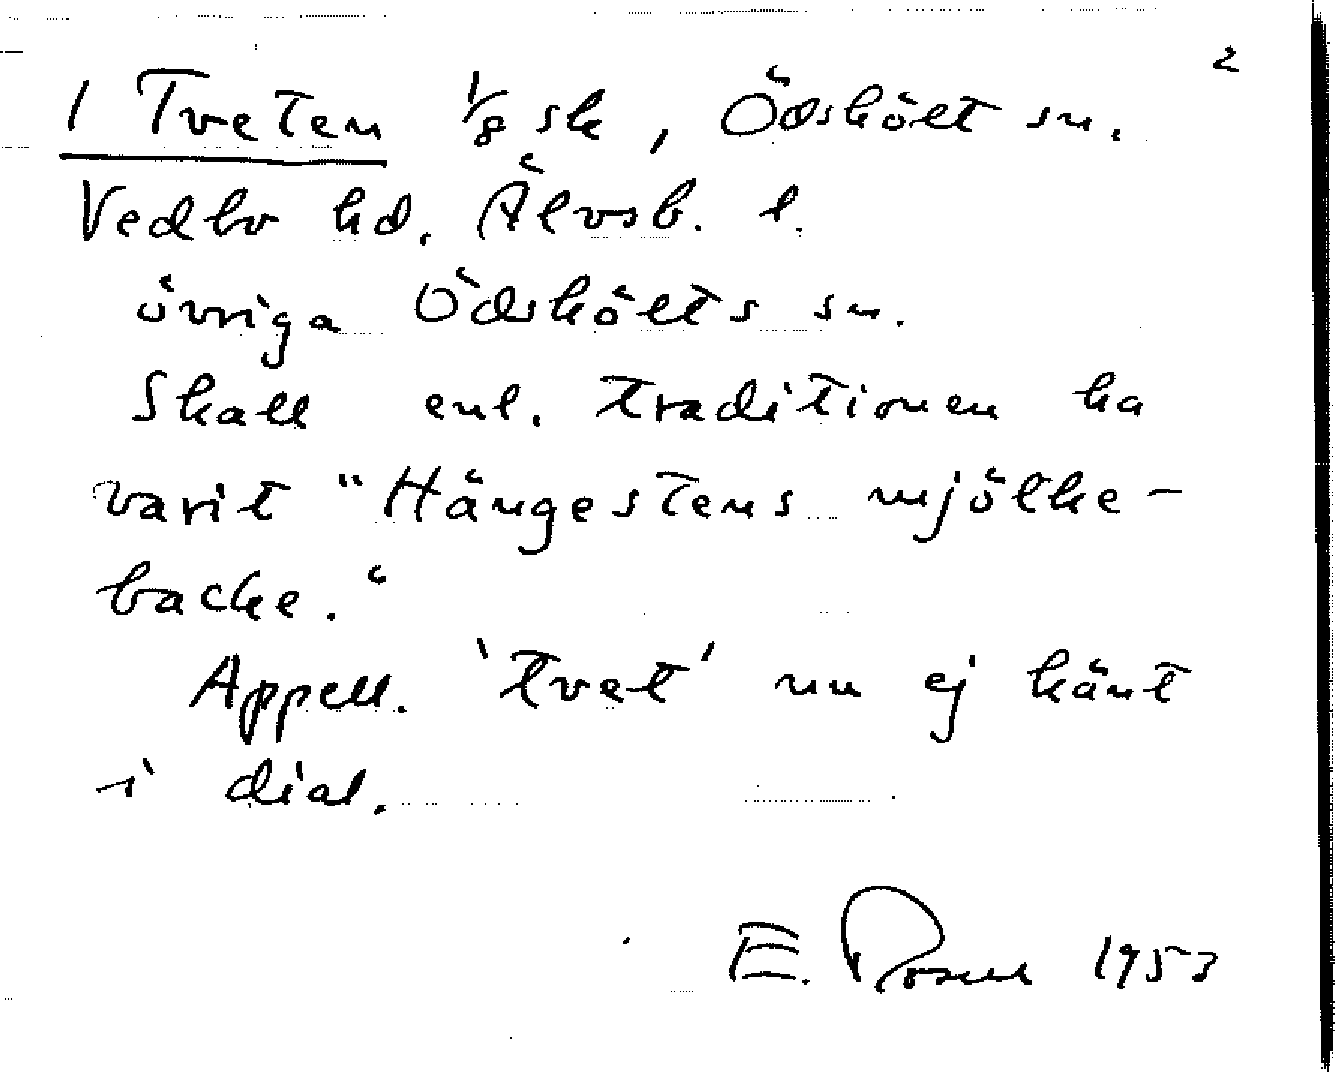 2
1 Tveten 1/8 sk, Ödskölt sn.
Vedbo hd. Älvsb. l.
övriga Ödskölts sn.
Skall enl. traditionen ha
varit "Hängestens mjölke-
backe."
Appell. 'tvet' nu ej känt
i dial.
E. 1953